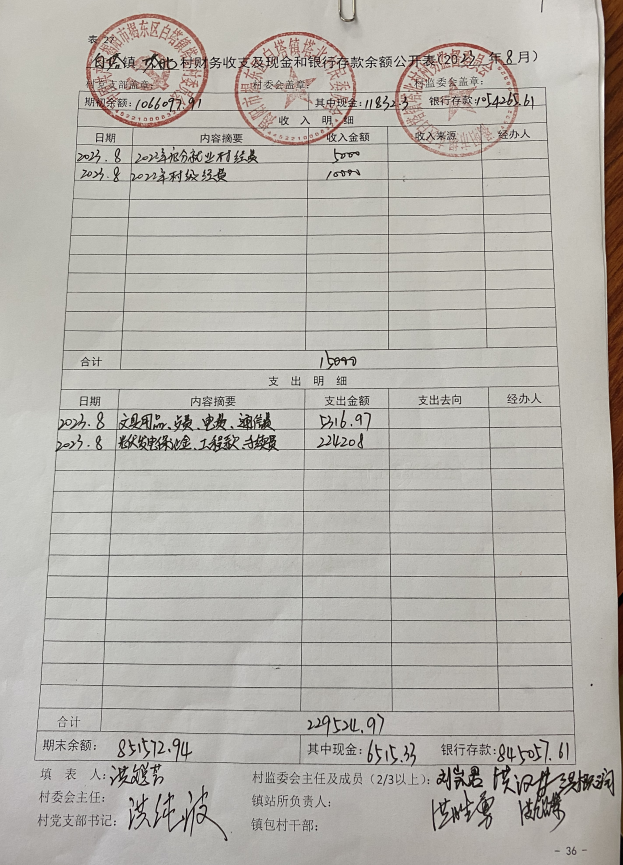 表 2
白塔镇 塔北 村财务收支及现金和银行存款余额公开表(2023 年 8 月)
村党支部盖章: 村委会盖章: 村监委会盖章:
期初余额: 1066097.91 其中现金: 11832.3 银行存款: 1054265.61
收 入 明 细
日期 内容摘要 收入金额 收入来源 经办人
2023.8 5000
2023.8 2022年村级经费 10000
合计 15000
支 出 明 细
日期 内容摘要 支出金额 支出去向 经办人
2023.8 文具用品、 电费、通信费 5316.97
2023.8 工程款、手续费 224208
合计 229524.97
期末余额: 851572.94 其中现金: 6515.33 银行存款: 845057.61
填 表 人: 村监委会主任及成员(2/3以上):
村委会主任: 镇站所负责人:
村党支部书记: 洪纯波 镇包村干部:
- 36 -